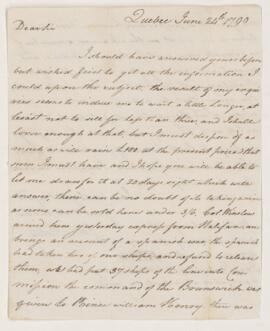 Quebec June 24th 1790
Dear Sir
I should have answered yours before
but wished first to get all the information I
could upon the subject, the result of my enqui
ries seems to induce me to wait a little longer, at
least not to sell for less than three, and I shall
leave enough at that, but I must dispose of as
much as will raise £100 at the present price that
sum I must have and I hope you will be able to
let one draw for it at 20 days sight which will
answer, there can be no doubt of its being
as none can be sold here under 3/6. Col Winslow
arrived here yesterday express from Halifax and
brings an account of a spanish war, the spanish
had taken two of our ships, and refused to release
them, we had put 37 ships of the line into Com
mission the command of the Brunswick was
given to Prince William Henry there was